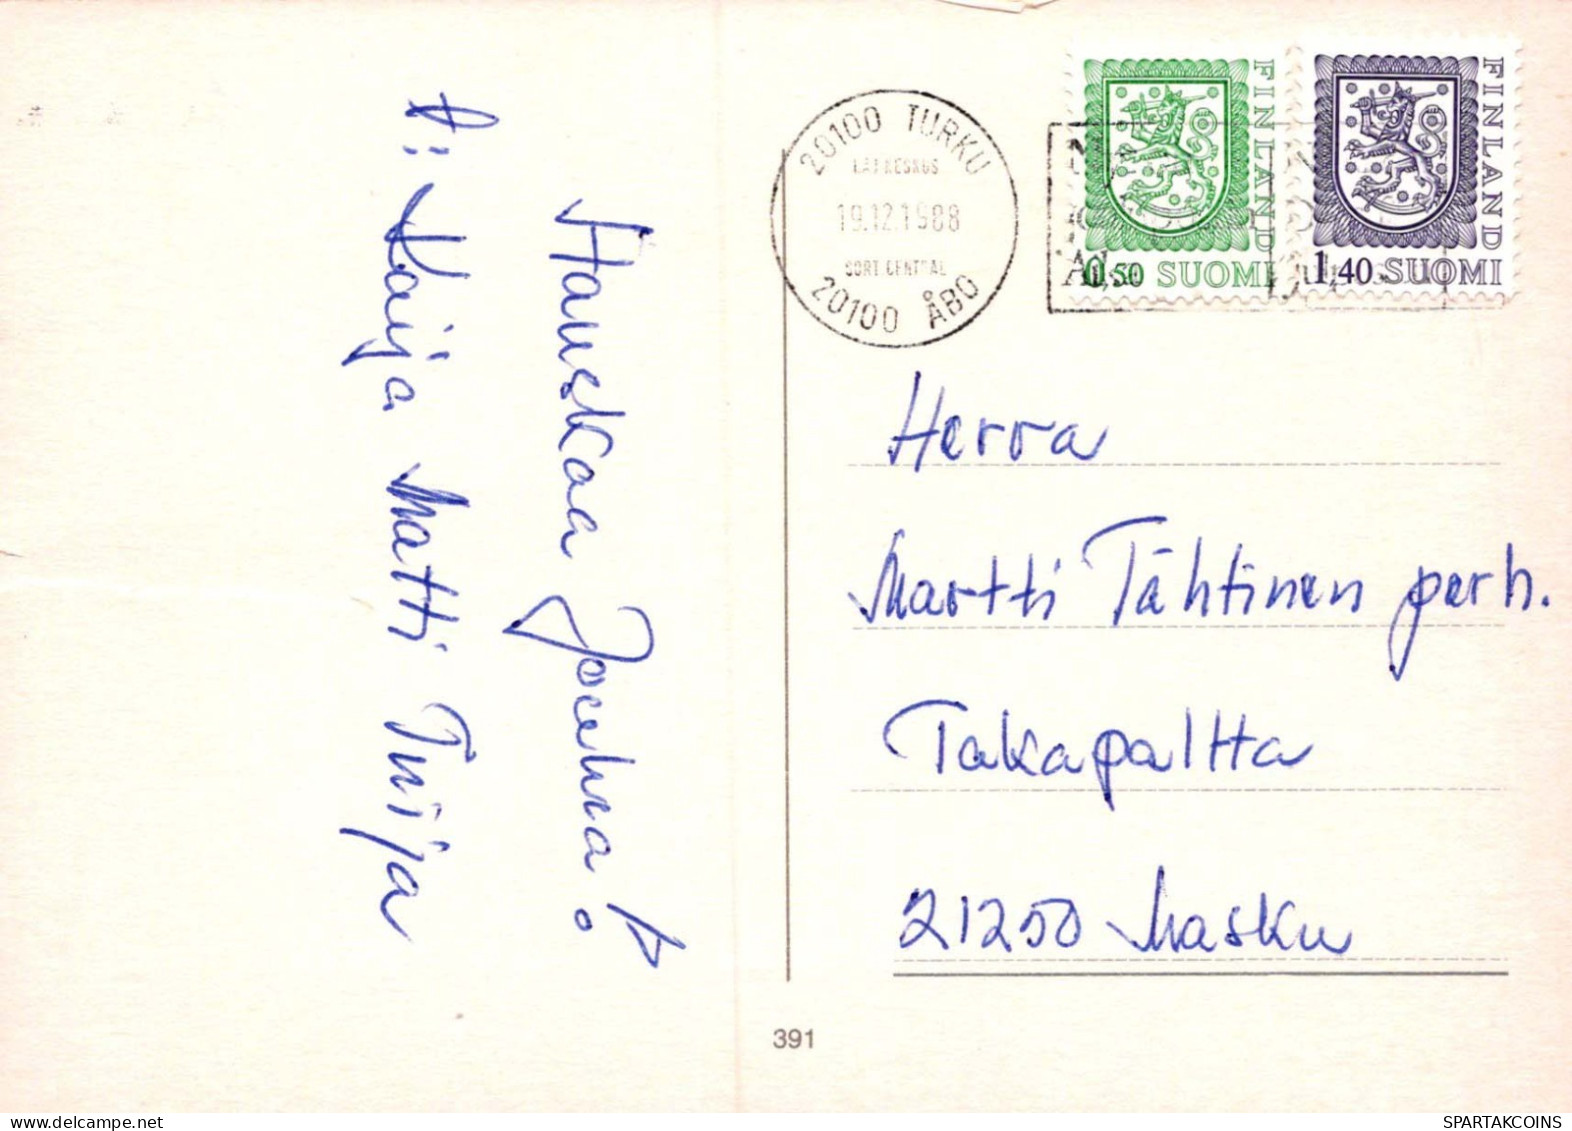 Hauskaa Joulua!
t: Kaija Matti Tuija
20100 TURKU
LAJ.KESKUS
19.12.1988
SORT.CENTRAL
20100 ÅBO
FINLAND
0,50 SUOMI
FINLAND
1,40 SUOMI
Herra
Martti Tähtinen perh.
Takapaltta
21250 Masku
391
SPARTAKCOINS